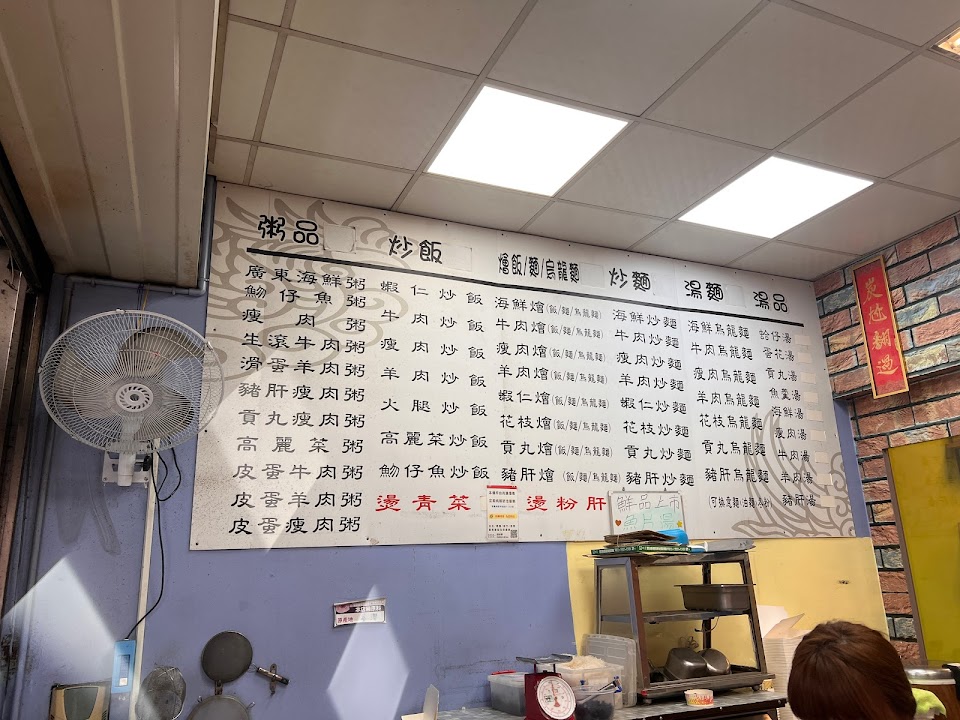 粥品
廣東海鮮粥
魩仔魚粥
瘦肉粥
生滾牛肉粥
滑蛋羊肉粥
豬肝瘦肉粥
貢丸瘦肉粥
高麗菜粥
皮蛋牛肉粥
皮蛋羊肉粥
皮蛋瘦肉粥
炒飯
蝦仁炒飯
牛肉炒飯
瘦肉炒飯
羊肉炒飯
火腿炒飯
高麗菜炒飯
魩仔魚炒飯
燙青菜
燴飯/麵/烏龍麵
海鮮燴(飯/麵/烏龍麵)
牛肉燴(飯/麵/烏龍麵)
瘦肉燴(飯/麵/烏龍麵)
羊肉燴(飯/麵/烏龍麵)
蝦仁燴(飯/麵/烏龍麵)
花枝燴(飯/麵/烏龍麵)
貢丸燴(飯/麵/烏龍麵)
豬肝燴(飯/麵/烏龍麵)
燙粉肝
炒麵
海鮮炒麵
牛肉炒麵
瘦肉炒麵
羊肉炒麵
蝦仁炒麵
花枝炒麵
貢丸炒麵
豬肝炒麵
鮮品上市
魚片湯
湯麵
海鮮烏龍麵
牛肉烏龍麵
瘦肉烏龍麵
羊肉烏龍麵
花枝烏龍麵
貢丸烏龍麵
豬肝烏龍麵
湯品
蛤仔湯
蛋花湯
貢丸湯
魚羹湯
海鮮湯
瘦肉湯
牛肉湯
羊肉湯
豬肝湯